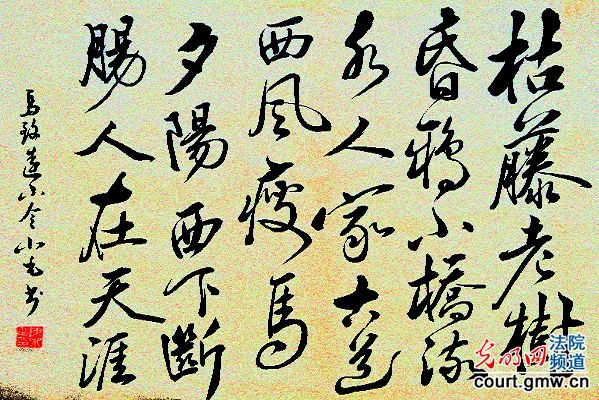 枯藤老樹
昏鴉小橋流
水人家古道
西風瘦馬
夕陽西下斷
腸人在天涯
馬致遠小令小毛书
光明网
法院
频道
court.gmw.cn